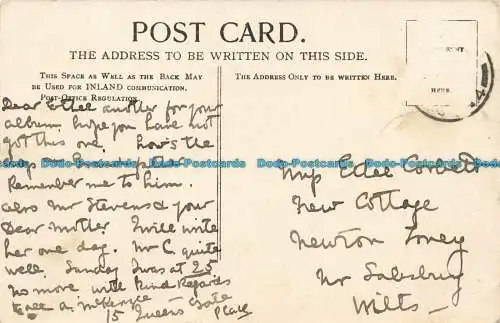 POST CARD.
THE ADDRESS TO BE WRITTEN ON THIS SIDE.
THIS SPACE AS WELL AS THE BACK MAY
BE USED FOR INLAND COMMUNICATION.
POST-OFFICE REGULATION.
THE ADDRESS ONLY TO BE WRITTEN HERE.
HERE.
Dear Ethel another for your
album. hope you have not
got this one. how's the
Remember me to him.
also Mr Stevens & your
Dear Mother. I will write
her one day. Mr C. quite
well. Sunday I was at 25
no more with kind Regards
15 Queens Gate
Place
Miss
New Cottage
Newton Toney
Nr Salisbury
Wilts
Dodo-Postcards Dodo-Postcards Dodo-Postcards Dodo-Postcards Dodo-Postcards